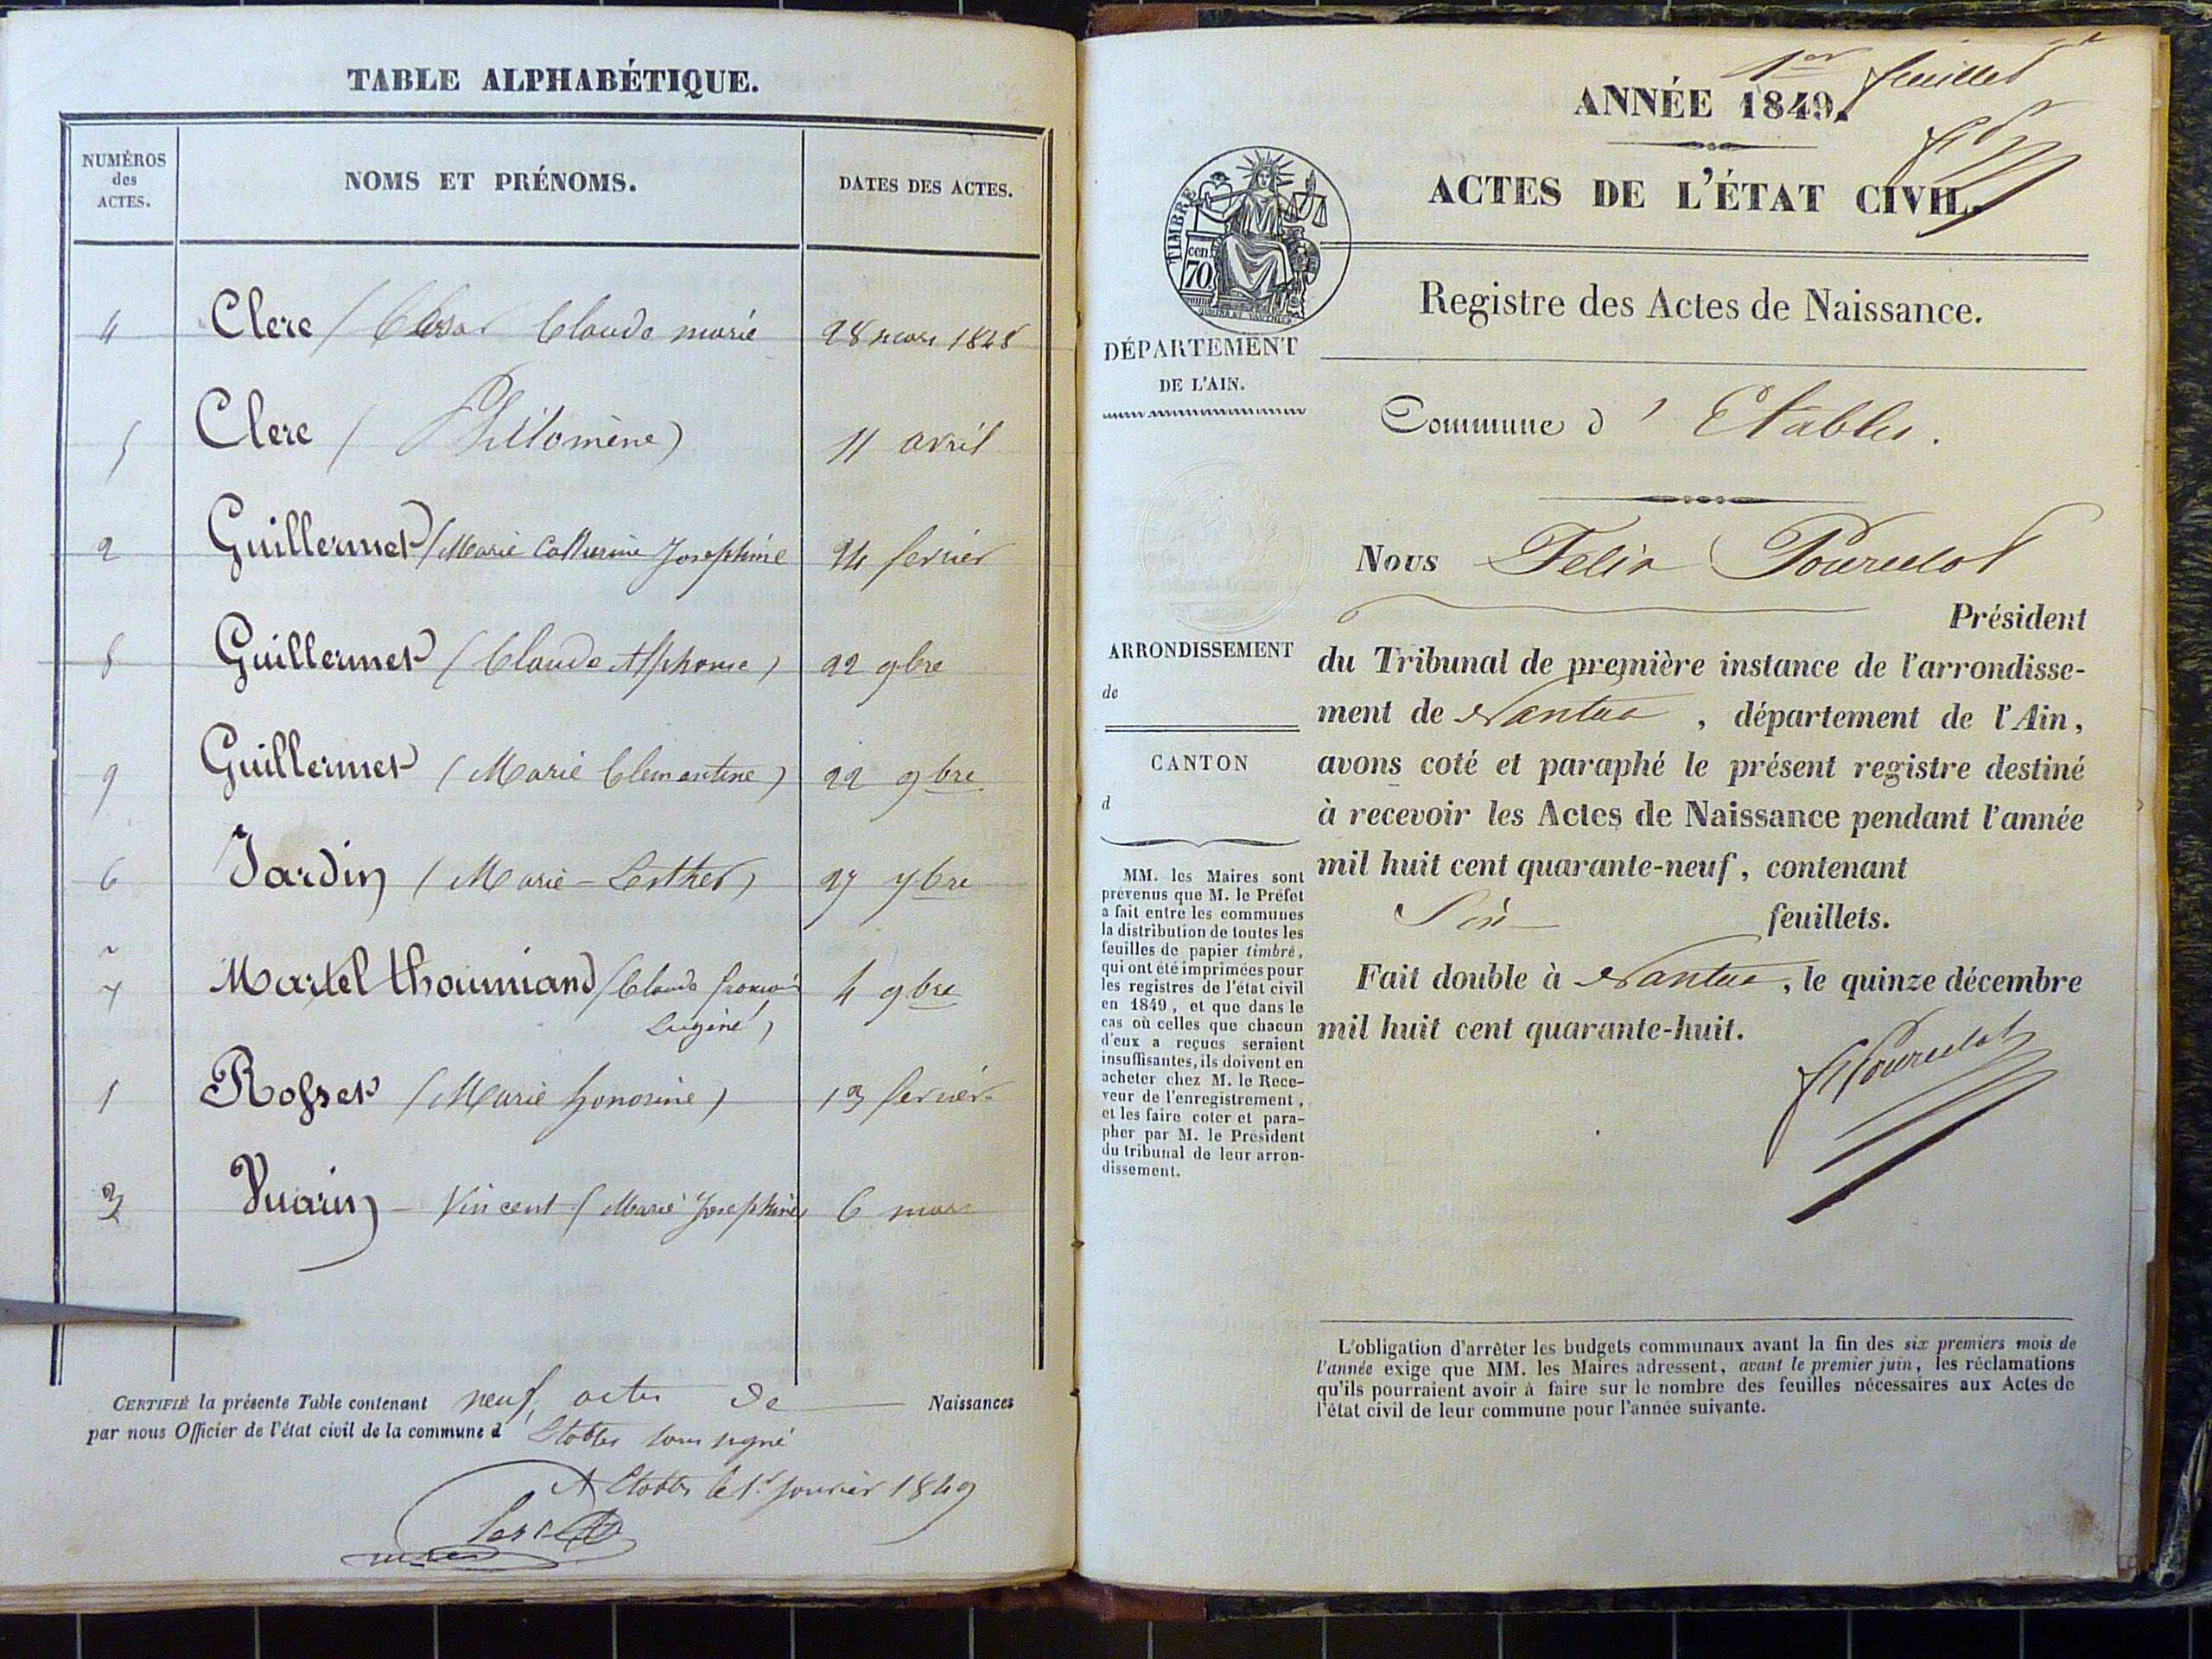 TABLE ALPHABÉTIQUE.
NUMÉROS des ACTES.
NOMS ET PRÉNOMS.
DATES DES ACTES.
4 Clerc (César Claude marie 28 mars 1848
5 Clerc (Philomène) 11 avril
2 Guillermet (Marie Catherine Josephine 24 fevrier
8 Guillermet (Claude Alphonse) 22 9bre
9 Guillermet (Marie Clementine) 22 9bre
6 Jardin (Marie-Esther) 27 7bre
7 Martel thoumiand (Claude françois 4 9bre
Eugène)
1 Rosset (Marie honorine) 13 fevrier
3 Vuarin - Vincent (Marie Josephine) 6 mars
CERTIFIÉ la présente Table contenant neuf actes de Naissances
par nous Officier de l'état civil de la commune d Etables soussigné
A Etables le 1r janvier 1849
1er feuillet
ANNÉE 1849.
ACTES DE L'ÉTAT CIVIL.
TIMBRE
70 cen.
Registre des Actes de Naissance.
DÉPARTEMENT
DE L'AIN.
Commune d' Etables.
Nous Felix Pourcelot
Président
ARRONDISSEMENT
de
CANTON
d
du Tribunal de première instance de l'arrondisse-
ment de Nantua, département de l'Ain,
avons coté et paraphé le présent registre destiné
à recevoir les Actes de Naissance pendant l'année
mil huit cent quarante-neuf, contenant
Six feuillets.
Fait double à Nantua, le quinze décembre
mil huit cent quarante-huit.
FPourcelot
MM. les Maires sont
prévenus que M. le Préfet
a fait entre les communes
la distribution de toutes les
feuilles de papier timbré,
qui ont été imprimées pour
les registres de l'état civil
en 1849, et que dans le
cas où celles que chacun
d'eux a reçues seraient
insuffisantes, ils doivent en
acheter chez M. le Rece-
veur de l'enregistrement,
et les faire coter et para-
pher par M. le Président
du tribunal de leur arron-
dissement.
L'obligation d'arrêter les budgets communaux avant la fin des six premiers mois de
l'année exige que MM. les Maires adressent, avant le premier juin, les réclamations
qu'ils pourraient avoir à faire sur le nombre des feuilles nécessaires aux Actes de
l'état civil de leur commune pour l'année suivante.